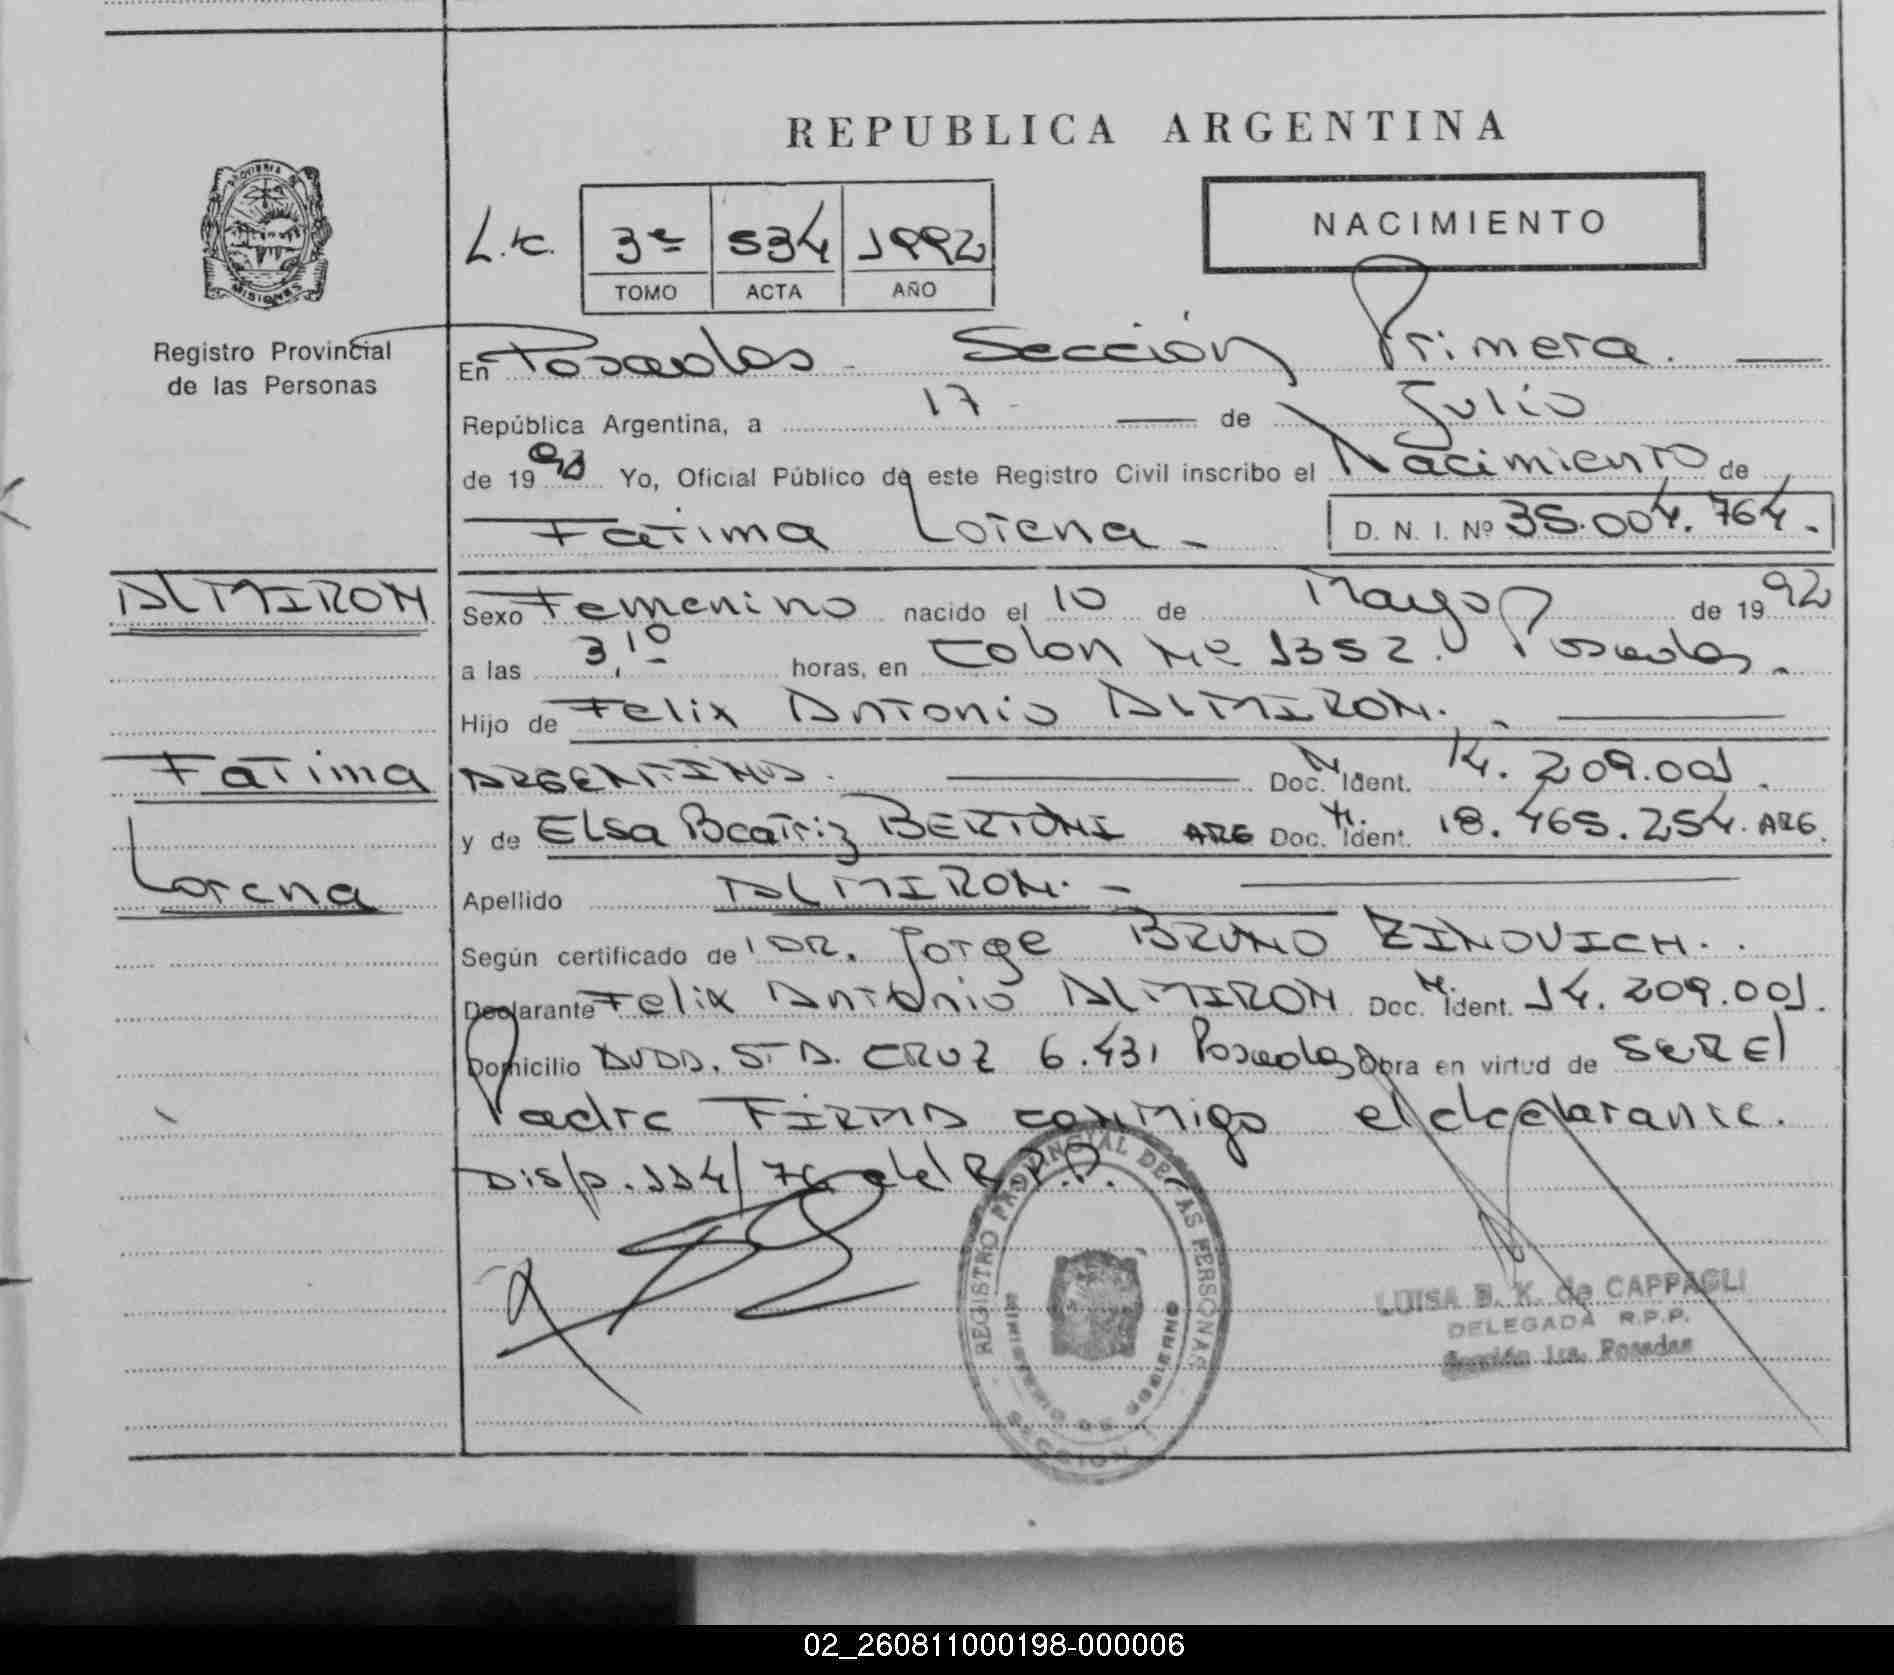 REPUBLICA ARGENTINA
NACIMIENTO
PROVINCIA DE
MISIONES
Registro Provincial
de las Personas
3º 534 1992
TOMO ACTA AÑO
En Posadas - Sección Primera.
República Argentina, a 17 - de Julio
de 1992 Yo, Oficial Público de este Registro Civil inscribo el Nacimiento de
Fatima Lorena - D. N. I. Nº 35.004.764.
ALMIRON
Sexo Femenino nacido el 10 de Mayo de 1992
a las 3,10 horas, en Colon Nº 1352. Posadas.
Hijo de Felix Antonio ALMIRON.
Fatima
ARGENTINO. Doc. N. Ident. 14.209.001.
y de Elsa Beatriz BERTONI ARG Doc. N. Ident. 18.465.254. ARG.
Lorena
Apellido ALMIRON. -
Según certificado de DR. Jorge BRUNO ZINOVICH.
Declarante Felix Antonio ALMIRON Doc. N. Ident. 14.209.001.
Domicilio AVDA. STA. CRUZ 6.431 Posadas Obra en virtud de SER El
Padre FIRMA conmigo el declarante.
Disp. 114/76 del R.P.P.
REGISTRO PROVINCIAL DE LAS PERSONAS
MINISTERIO DE GOBIERNO
SECCION
LUISA B. K. de CAPPAGLI
DELEGADA R.P.P.
Sección 1ra. Posadas
02_260811000198-000006